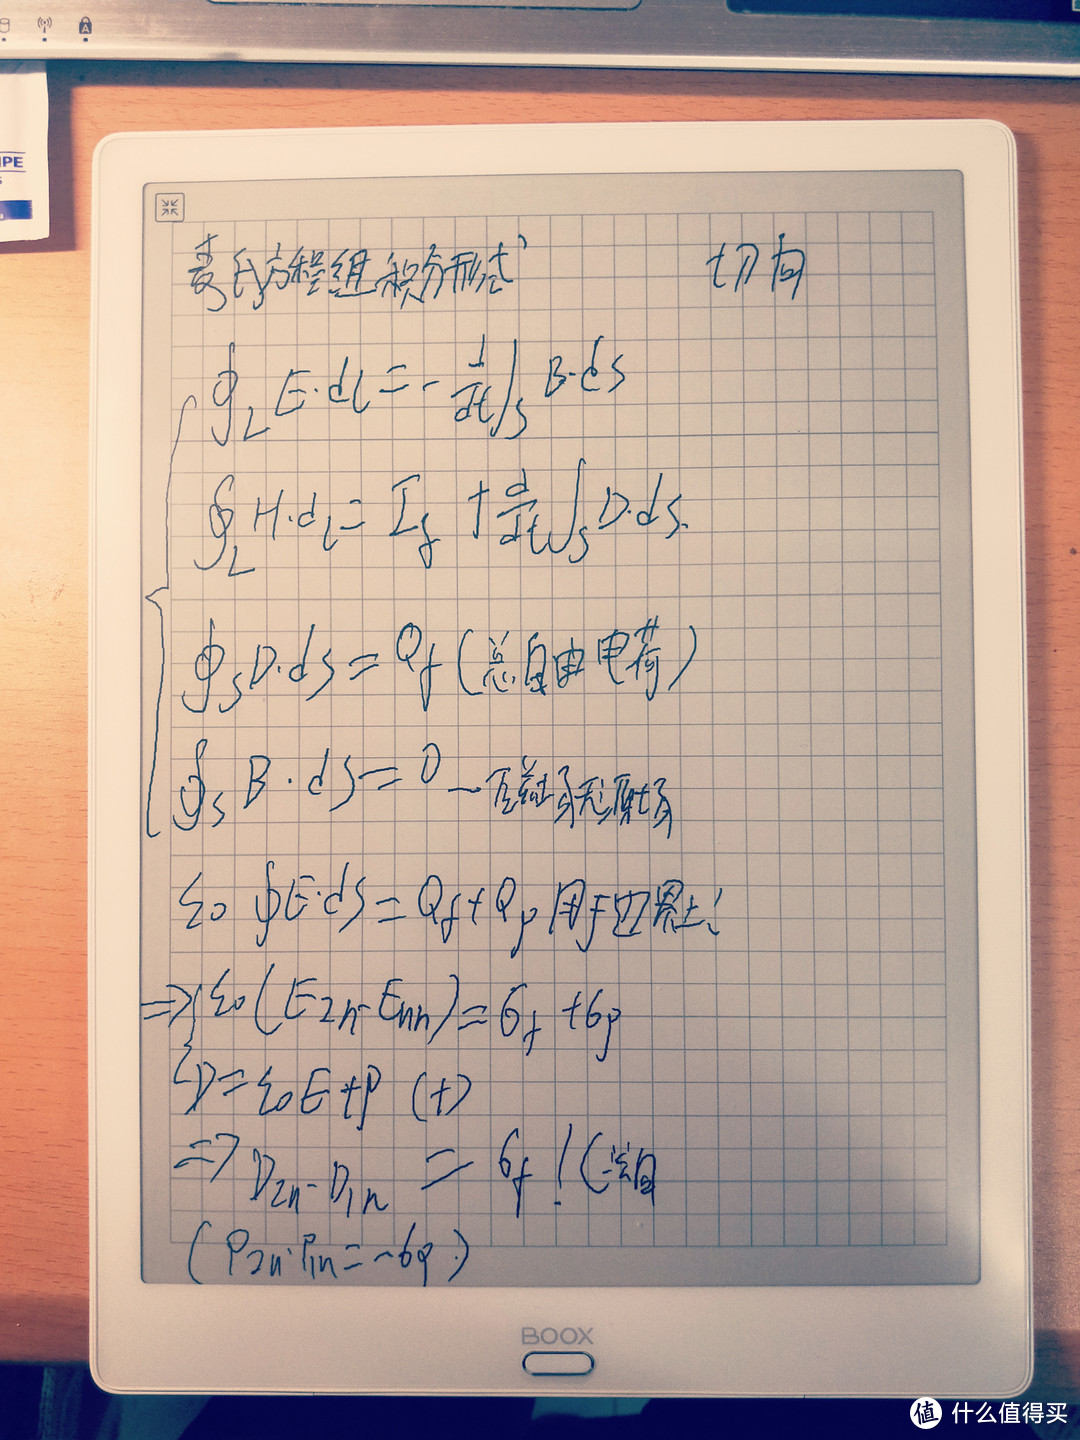 IPE
麦氏方程组积分形式 切向
∮_L E·dl = - d/dt ∫_S B·ds
∮_L H·dl = I_f + d/dt ∫_S D·ds.
∮_S D·ds = Q_f (总自由电荷)
∮_S B·ds = 0
ε0 ∮E·ds = Q_f + Q_p 用于边界上!
⇒ ε0(E2n - E1n) = σ_f + σ_p
D = ε0E + P (t)
⇒ D2n - D1n = σ_f ! (总自
(P2n·P1n = -σp.)
BOOX
值 什么值得买